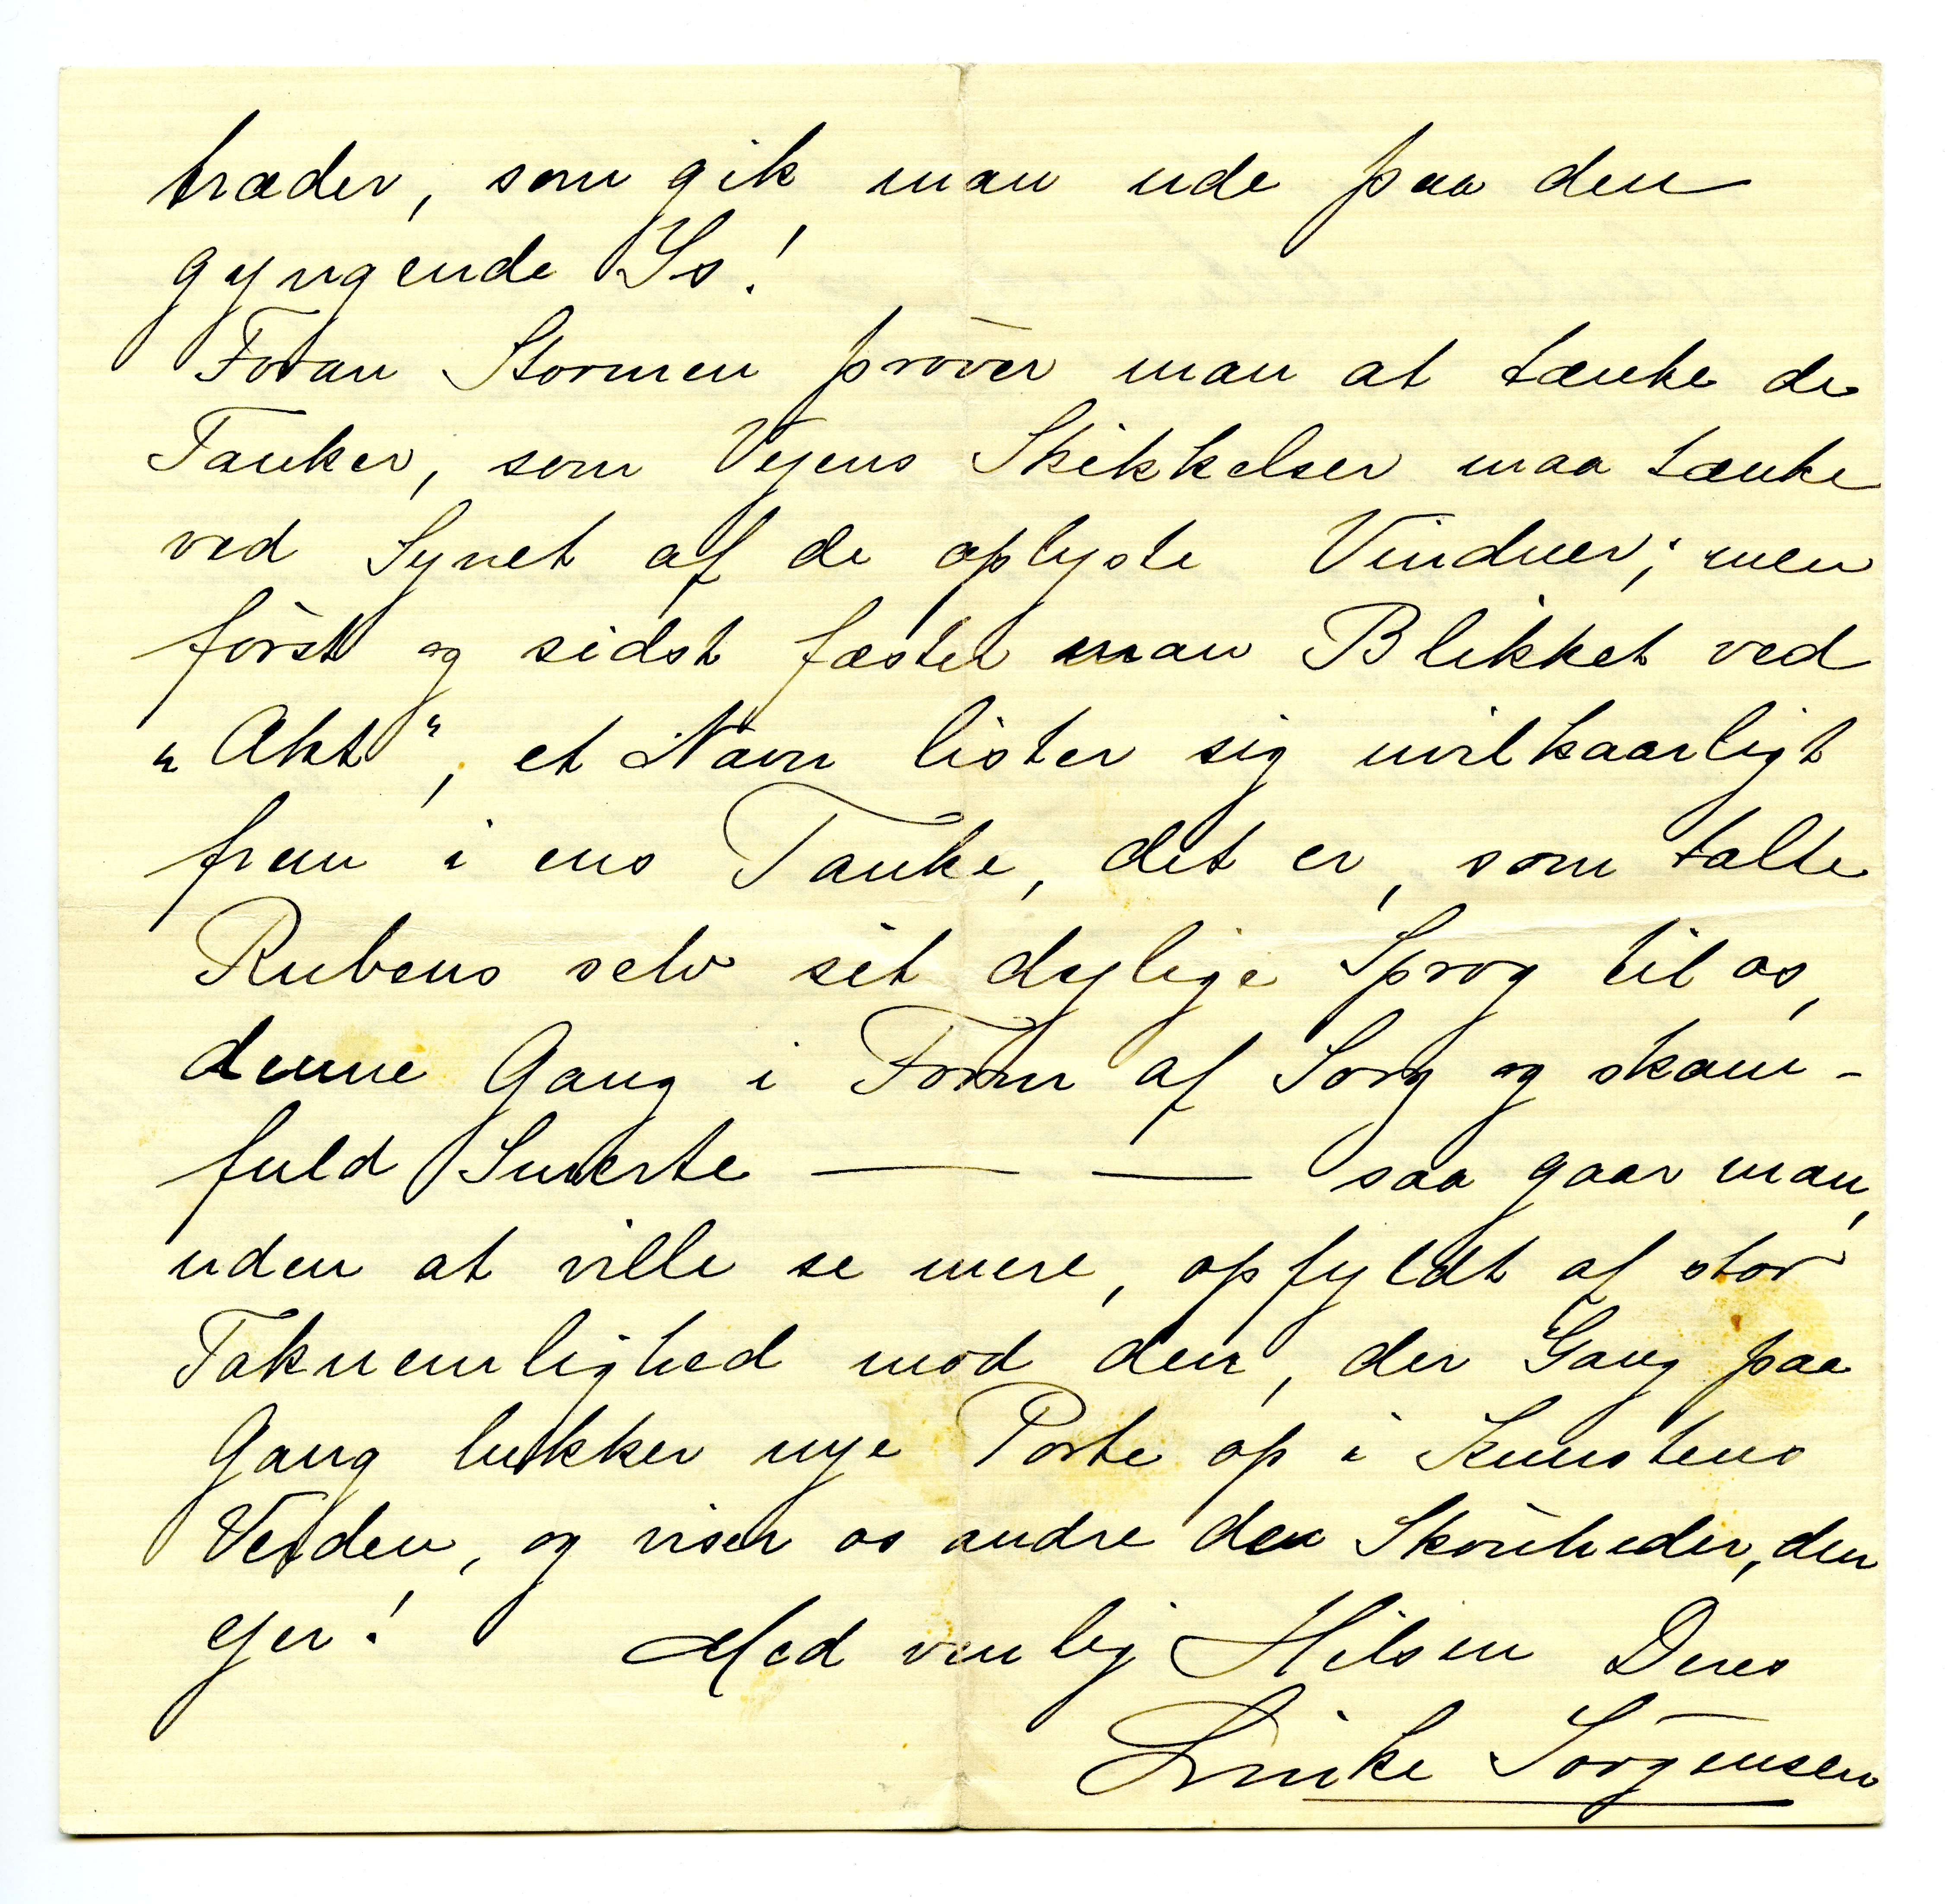 træder, som gik man ude paa den
gyngende Is!
Foran Stormen prøver man at tænke de
Tanker, som Vejens Skikkelser maa tænke
ved Synet af de oplyste Vinduer; men
først og sidst fæster man Blikket ved
„Akt“, et Navn lister sig uvilkaarligt
frem i ens Tanke, det er, som talte
Rubens selv sit dylige Sprog til os,
denne Gang i Form af Sorg og skam-
fuld Smerte — — saa gaar man,
uden at ville se mere, opfyldt af stor
Taknemlighed mod den, der Gang paa
Gang lukker nye Porte op i Kunstens
Verden, og viser os andre den Skønheder, den
ejer! Med venlig Hilsen Deres
Sørgensen